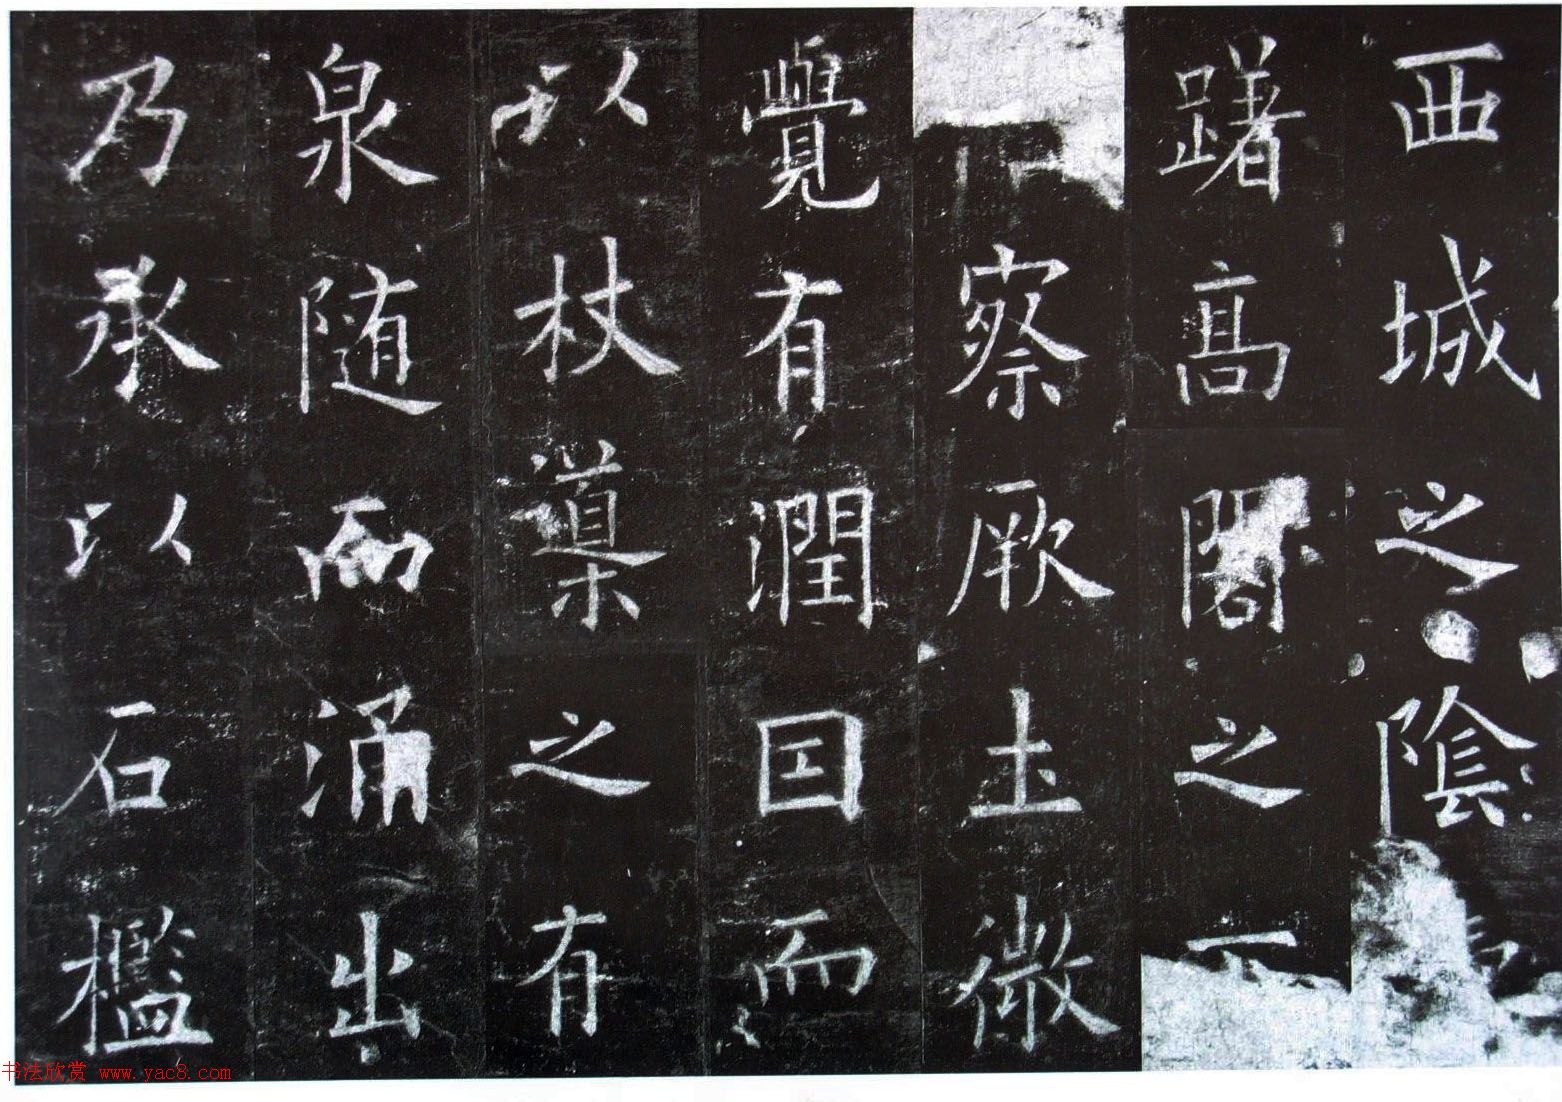 西城之陰
躇髙閣之
察厥土微
覺有潤囙而
以杖導之有
泉随而涌出
乃承以石檻
书法欣赏 www.yac8.com